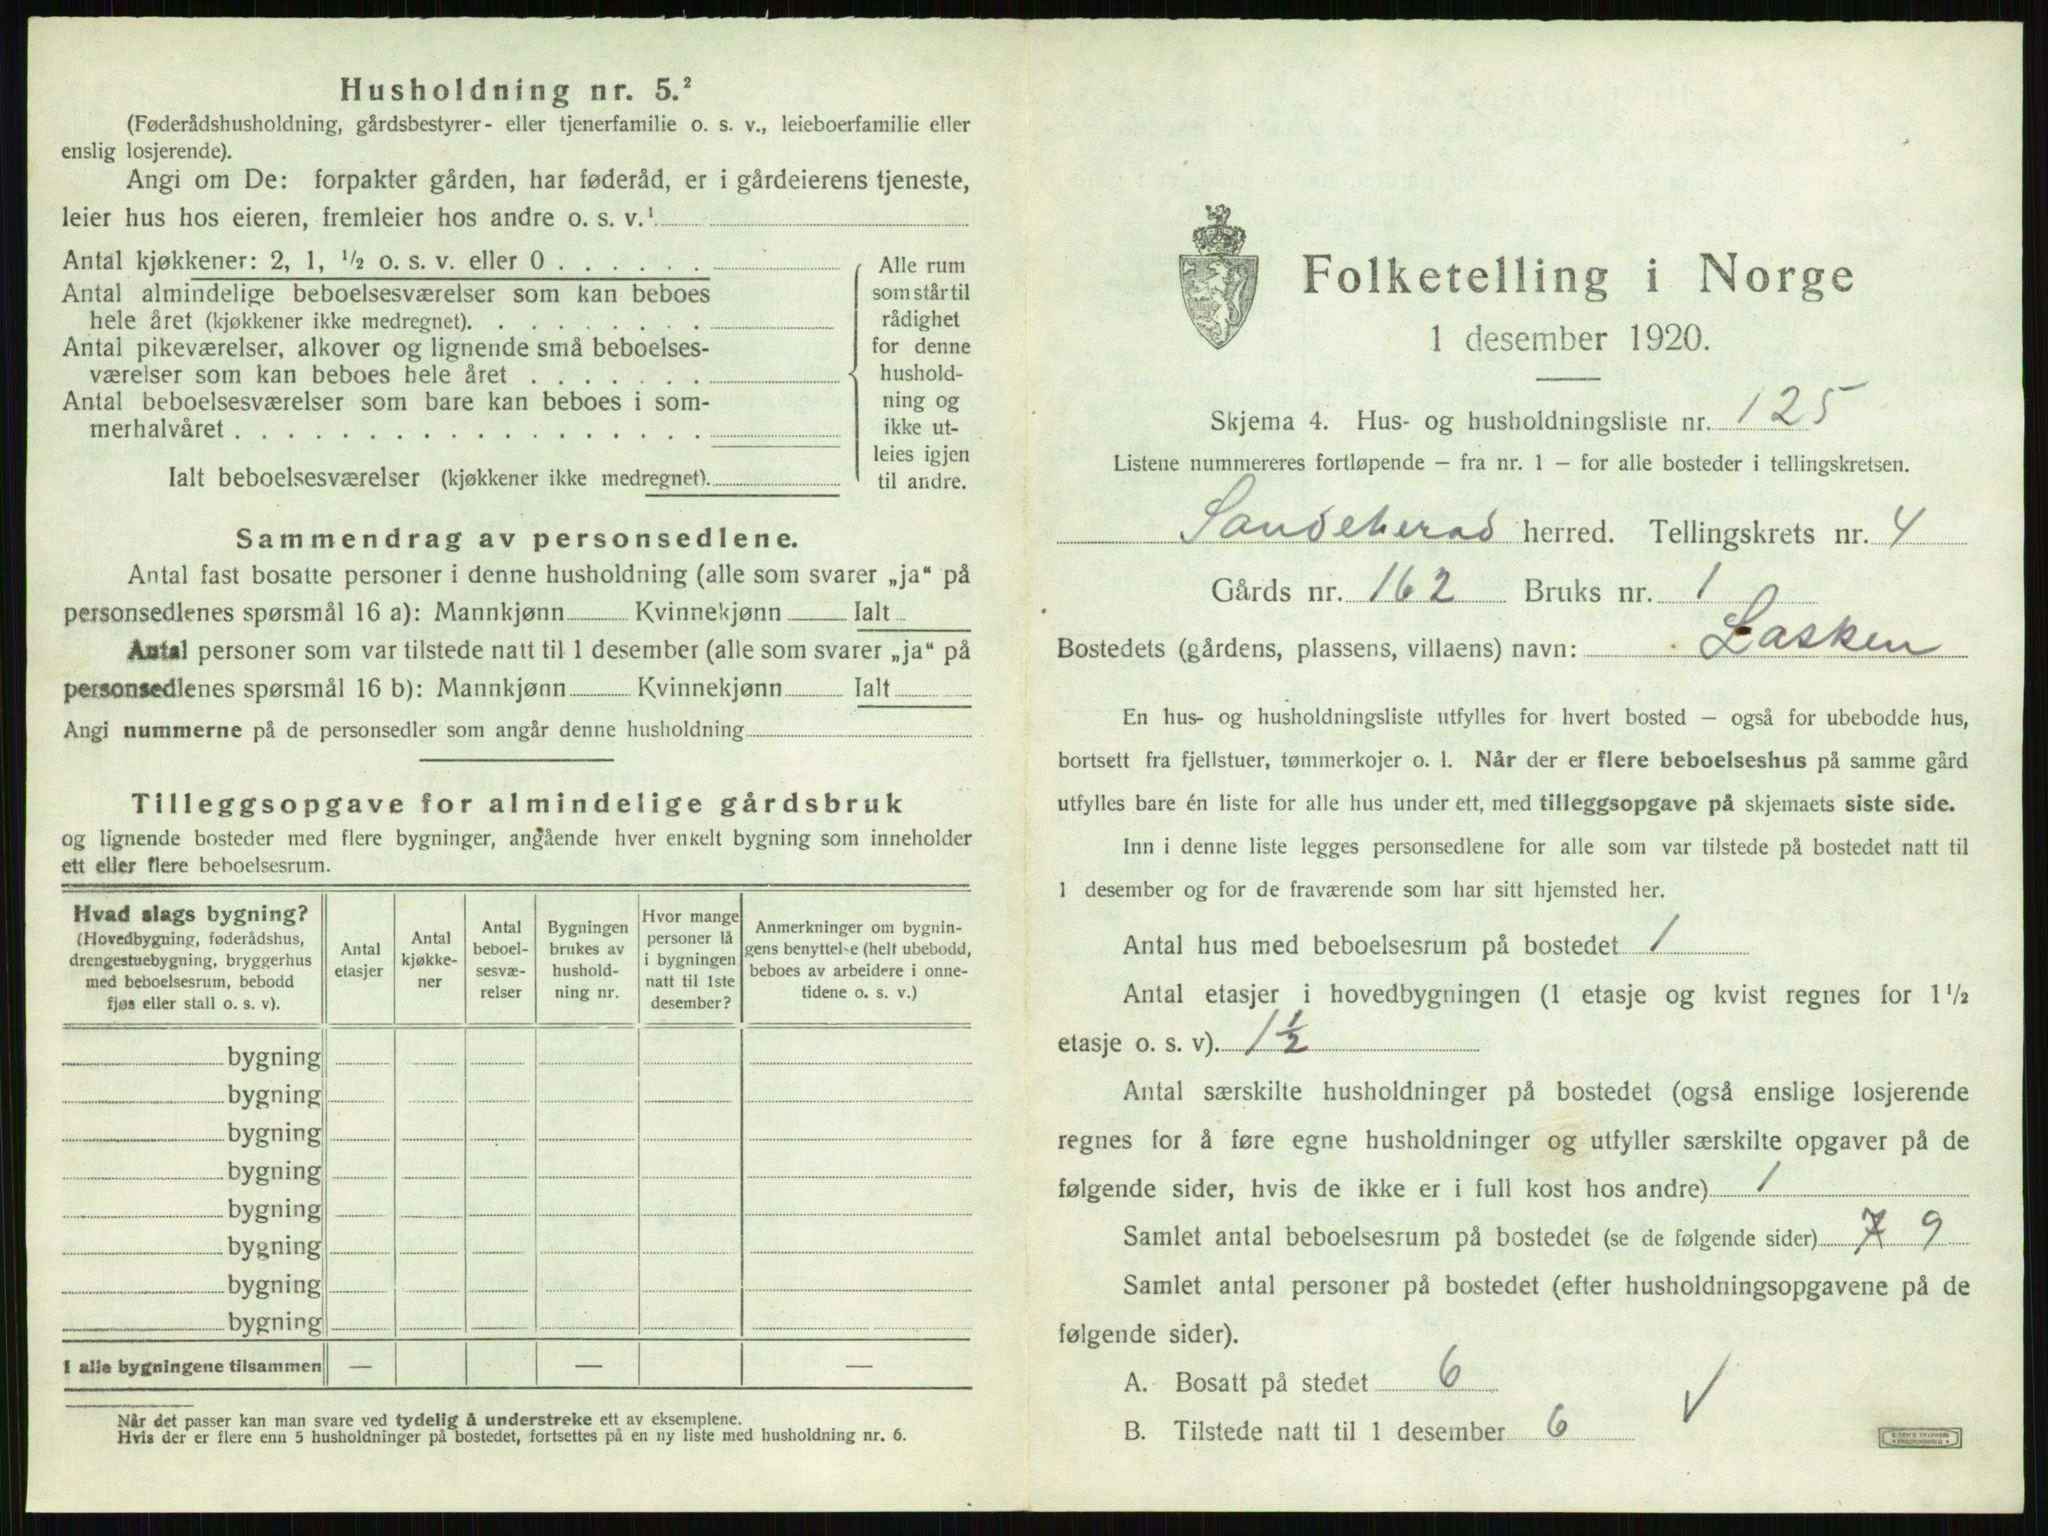 Husholdning nr. 5.²
(Føderådshusholdning, gårdsbestyrer- eller tjenerfamilie o. s. v., leieboerfamilie eller
enslig losjerende).
Angi om De: forpakter gården, har føderåd, er i gårdeierens tjeneste,
leier hus hos eieren, fremleier hos andre o. s. v.¹
Antal kjøkkener: 2, 1, ½ o. s. v. eller 0 . . . . . .
Antal almindelige beboelsesværelser som kan beboes
hele året (kjøkkener ikke medregnet). . . . . . . . .
Antal pikeværelser, alkover og lignende små beboelses-
værelser som kan beboes hele året . . . . . . .
Antal beboelsesværelser som bare kan beboes i som-
merhalvåret . . . . . . . . . . . . . . . . . .
Ialt beboelsesværelser (kjøkkener ikke medregnet).
Alle rum
som står til
rådighet
for denne
hushold-
ning og
ikke ut-
leies igjen
til andre.
Sammendrag av personsedlene.
Antal fast bosatte personer i denne husholdning (alle som svarer „ja“ på
personsedlenes spørsmål 16 a): Mannkjønn Kvinnekjønn Ialt
Antal personer som var tilstede natt til 1 desember (alle som svarer „ja“ på
personsedlenes spørsmål 16 b): Mannkjønn Kvinnekjønn Ialt
Angi nummerne på de personsedler som angår denne husholdning
Tilleggsopgave for almindelige gårdsbruk
og lignende bosteder med flere bygninger, angående hver enkelt bygning som inneholder
ett eller flere beboelsesrum.
Hvad slags bygning?
(Hovedbygning, føderådshus,
drengestuebygning, bryggerhus
med beboelsesrum, bebodd
fjøs eller stall o. s. v).
Antal
etasjer
Antal
kjøkke-
ner
Antal
beboel-
sesvæ-
relser
Bygningen
brukes av
hushold-
ning nr.
Hvor mange
personer lå
i bygningen
natt til 1ste
desember?
Anmerkninger om bygnin-
gens benyttelse (helt ubebodd,
beboes av arbeidere i onne-
tidene o. s. v.)
bygning
bygning
bygning
bygning
bygning
bygning
bygning
bygning
I alle bygningene tilsammen — — —
Når det passer kan man svare ved tydelig å understreke ett av eksemplene.
Hvis der er flere enn 5 husholdninger på bostedet, fortsettes på en ny liste med husholdning nr. 6.
Folketelling i Norge
1 desember 1920.
Skjema 4. Hus- og husholdningsliste nr. 125
Listene nummereres fortløpende – fra nr. 1 – for alle bosteder i tellingskretsen.
Sandeherad herred. Tellingskrets nr. 4
Gårds nr. 162 Bruks nr. 1
Bostedets (gårdens, plassens, villaens) navn: Lasken
En hus- og husholdningsliste utfylles for hvert bosted – også for ubebodde hus,
bortsett fra fjellstuer, tømmerkojer o. l. Når der er flere beboelseshus på samme gård
utfylles bare én liste for alle hus under ett, med tilleggsopgave på skjemaets siste side.
Inn i denne liste legges personsedlene for alle som var tilstede på bostedet natt til
1 desember og for de fraværende som har sitt hjemsted her.
Antal hus med beboelsesrum på bostedet 1
Antal etasjer i hovedbygningen (1 etasje og kvist regnes for 1 ½
etasje o. s. v). 1 ½
Antal særskilte husholdninger på bostedet (også enslige losjerende
regnes for å føre egne husholdninger og utfyller særskilte opgaver på de
følgende sider, hvis de ikke er i full kost hos andre) 1
Samlet antal beboelsesrum på bostedet (se de følgende sider) 7 9
Samlet antal personer på bostedet (efter husholdningsopgavene på de
følgende sider).
A. Bosatt på stedet 6
B. Tilstede natt til 1 desember 6